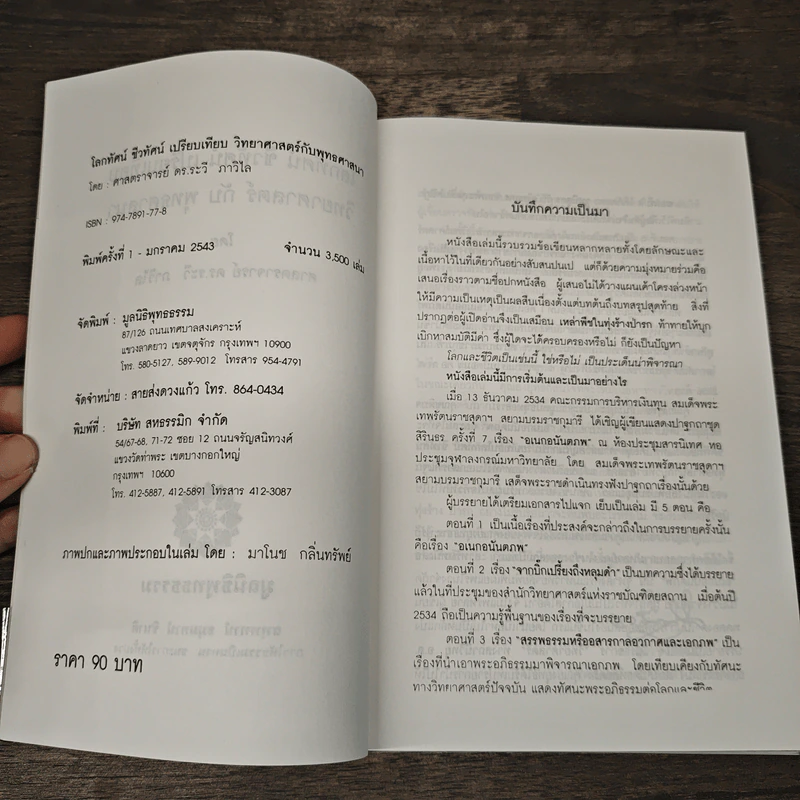 โลกทัศน์ ชีวทัศน์ เปรียบเทียบ วิทยาศาสตร์กับพุทธศาสนา
โดย : ศาสตราจารย์ ดร.ระวี ภาวิไล
ISBN : 974-7891-77-8
พิมพ์ครั้งที่ 1 - มกราคม 2543 จำนวน 3,500 เล่ม
จัดพิมพ์ : มูลนิธิพุทธธรรม
87/126 ถนนเทศบาลสงเคราะห์
แขวงลาดยาว เขตจตุจักร กรุงเทพฯ 10900
โทร. 580-5127, 589-9012 โทรสาร 954-4791
จัดจำหน่าย : สายส่งดวงแก้ว โทร. 864-0434
พิมพ์ที่ : บริษัท สหธรรมิก จำกัด
54/67-68, 71-72 ซอย 12 ถนนจรัญสนิทวงศ์
แขวงวัดท่าพระ เขตบางกอกใหญ่
กรุงเทพฯ 10600
โทร. 412-5887, 412-5891 โทรสาร 412-3087
ภาพปกและภาพประกอบในเล่ม โดย : มาโนช กลิ่นทรัพย์
ราคา 90 บาท
บันทึกความเป็นมา
หนังสือเล่มนี้รวบรวมข้อเขียนหลากหลายทั้งโดยลักษณะและ
เนื้อหาไว้ในที่เดียวกันอย่างสับสนปนเป แต่ก็ด้วยความมุ่งหมายร่วมคือ
เสนอเรื่องราวตามชื่อปกหนังสือ ผู้เสนอไม่ได้วางแผนเค้าโครงล่วงหน้า
ให้มีความเป็นเหตุเป็นผลสืบเนื่องตั้งแต่บทต้นถึงบทสรุปสุดท้าย สิ่งที่
ปรากฏต่อผู้เปิดอ่านจึงเป็นเสมือน เหล่าพืชในทุ่งร้างป่ารก ท้าทายให้บุก
เบิกหาสมบัติมีค่า ซึ่งผู้ใดจะได้ครอบครองหรือไม่ ก็ยังเป็นปัญหา
โลกและชีวิตเป็นเช่นนี้ ใช่หรือไม่ เป็นประเด็นน่าพิจารณา
หนังสือเล่มนี้มีการเริ่มต้นและเป็นมาอย่างไร
เมื่อ 13 ธันวาคม 2534 คณะกรรมการบริหารเงินทุน สมเด็จพระ
เทพรัตนราชสุดาฯ สยามบรมราชกุมารี ได้เชิญผู้เขียนแสดงปาฐกถาชุด
สิรินธร ครั้งที่ 7 เรื่อง "อเนกอนันตภพ" ณ ห้องประชุมสารนิเทศ หอ
ประชุมจุฬาลงกรณ์มหาวิทยาลัย โดย สมเด็จพระเทพรัตนราชสุดาฯ
สยามบรมราชกุมารี เสด็จพระราชดำเนินทรงฟังปาฐกถาเรื่องนั้นด้วย
ผู้บรรยายได้เตรียมเอกสารไปแจก เย็บเป็นเล่ม มี 5 ตอน คือ
ตอนที่ 1 เป็นเนื้อเรื่องที่ประสงค์จะกล่าวถึงในการบรรยายครั้งนั้น
คือเรื่อง "อเนกอนันตภพ"
ตอนที่ 2 เรื่อง "จากบิ๊กเปรี้ยงถึงหลุมดำ" เป็นบทความซึ่งได้บรรยาย
แล้วในที่ประชุมของสำนักวิทยาศาสตร์แห่งราชบัณฑิตยสถาน เมื่อต้นปี
2534 ถือเป็นความรู้พื้นฐานของเรื่องที่จะบรรยาย
ตอนที่ 3 เรื่อง "สรรพธรรมหรือสสารกาลอวกาศและเอกภพ" เป็น
เรื่องที่นำเอาพระอภิธรรมมาพิจารณาเอกภพ โดยเทียบเคียงกับทัศนะ
ทางวิทยาศาสตร์ปัจจุบัน แสดงทัศนะพระอภิธรรมต่อโลกและชีวิต